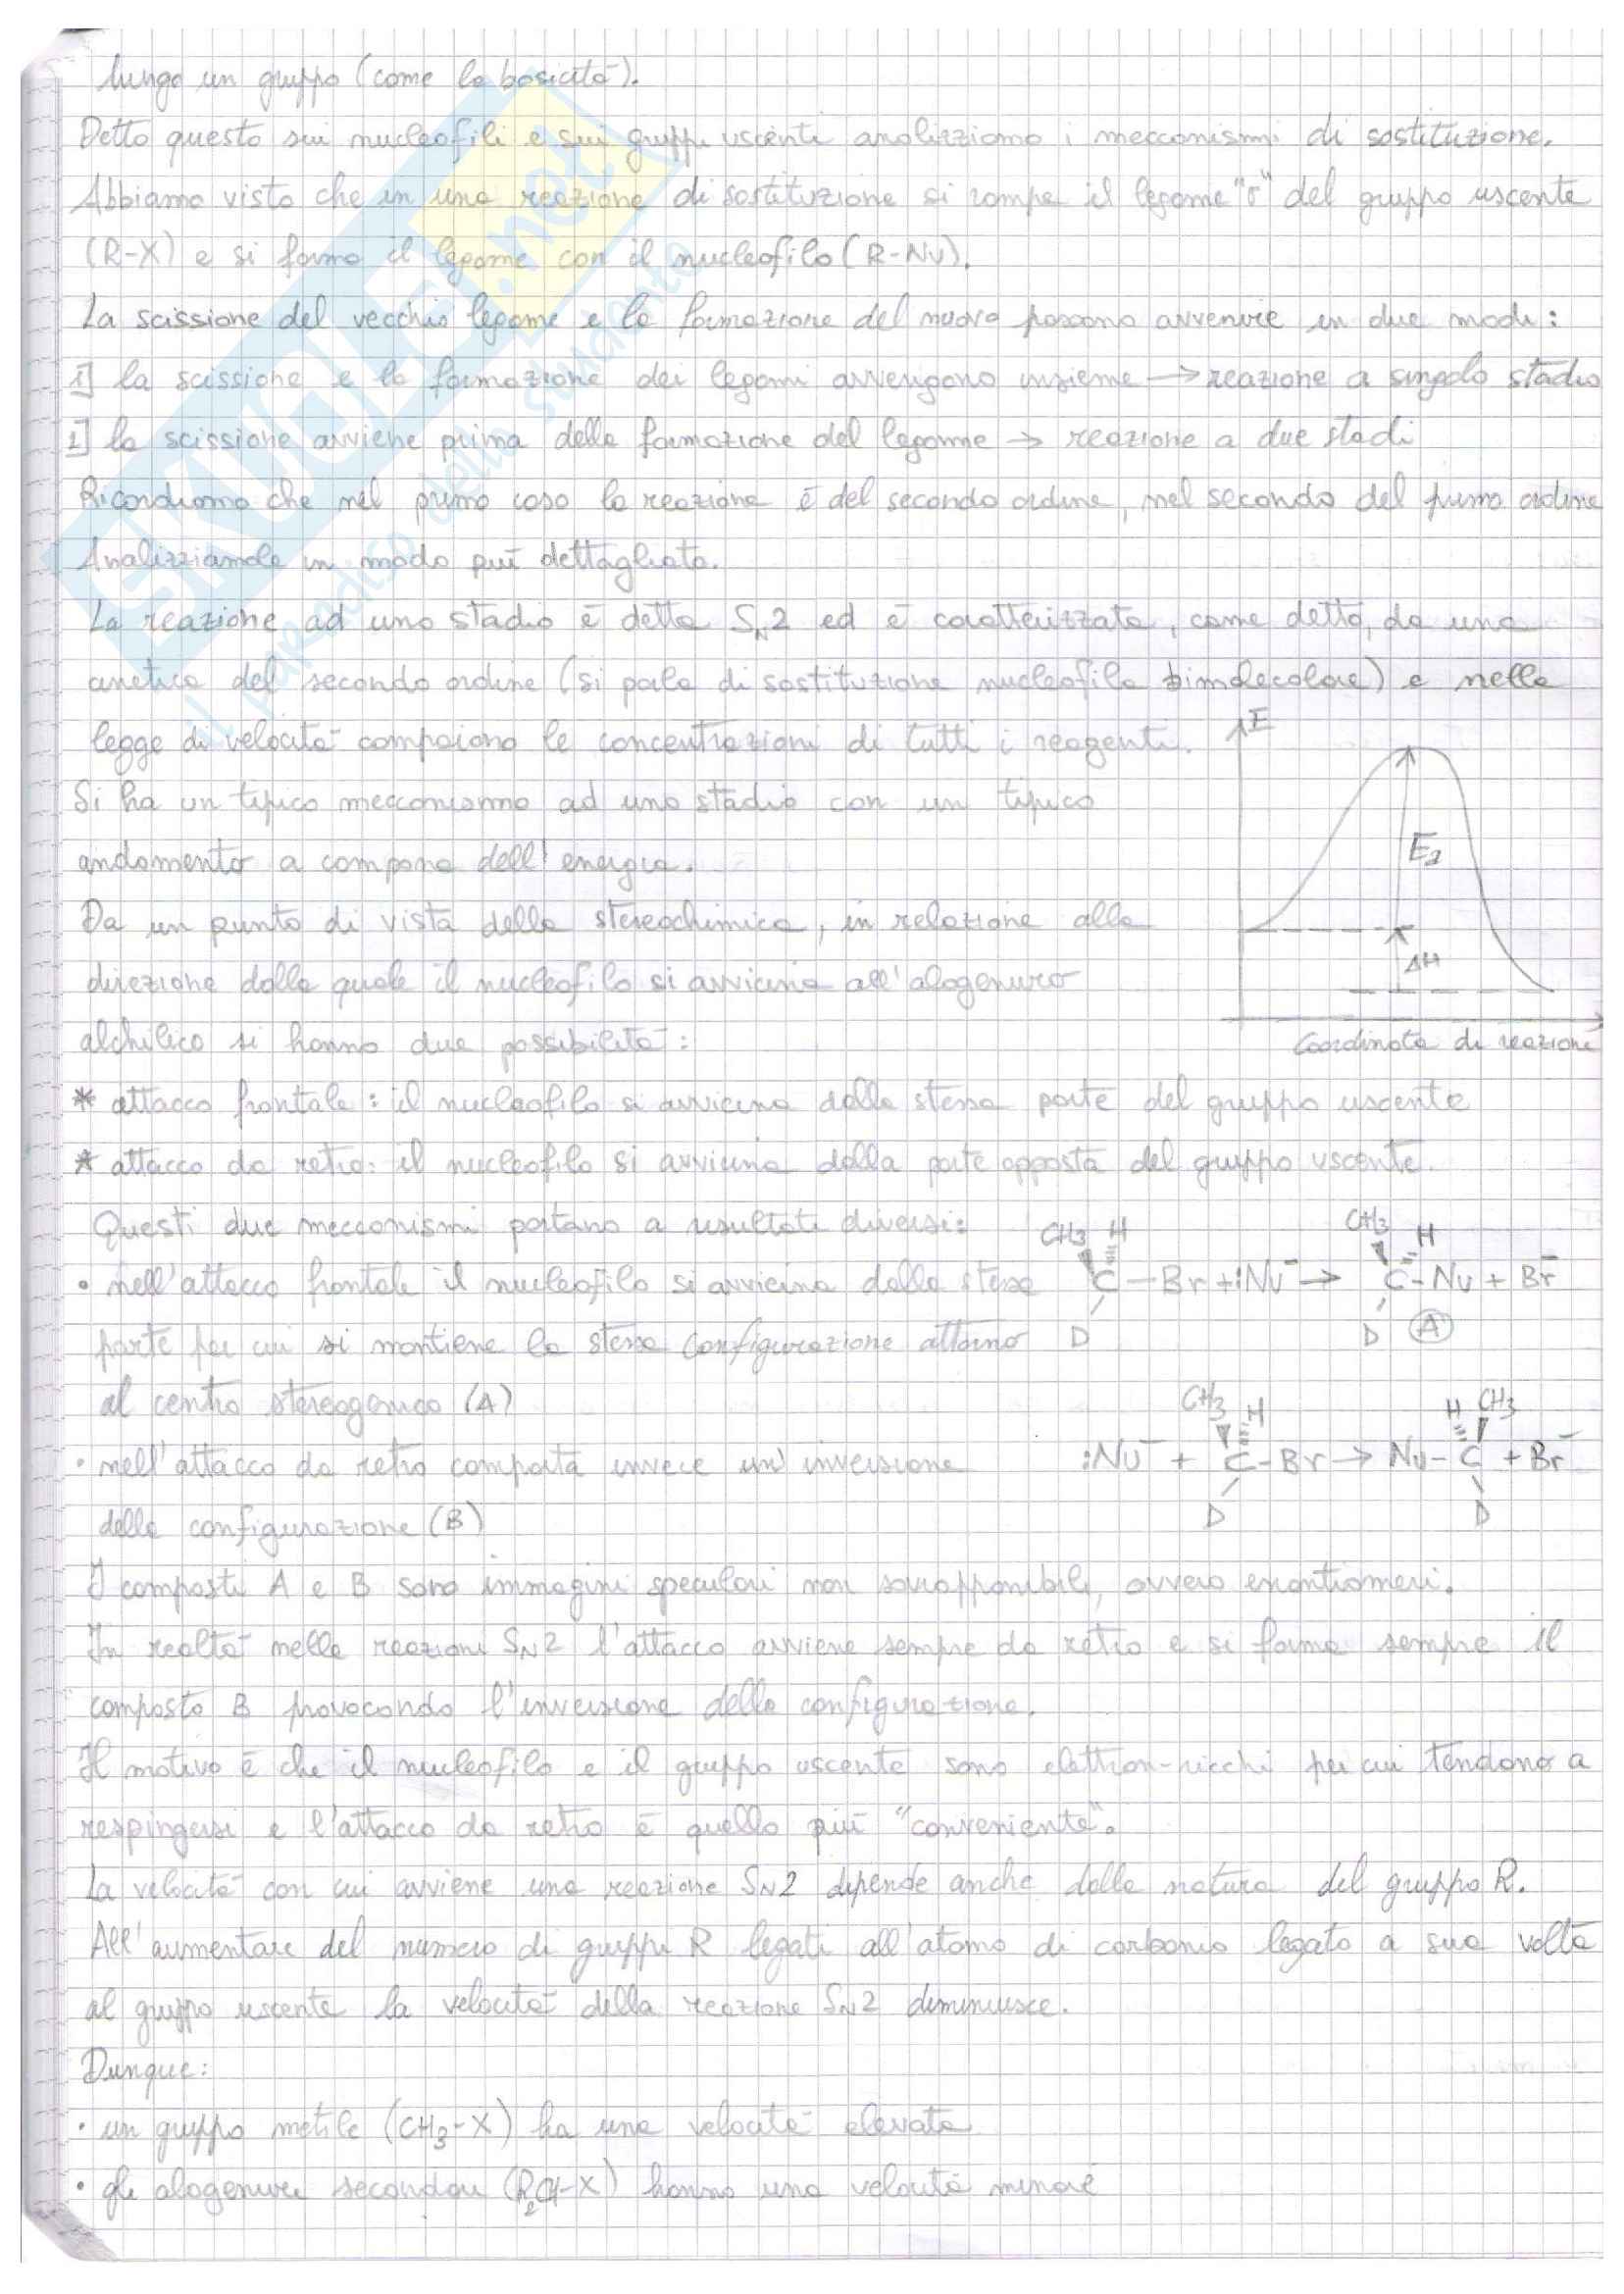 lungo un gruppo (come la basicità).
Detto questo sui nucleofili e sui gruppi uscenti analizziamo i meccanismi di sostituzione.
Abbiamo visto che in una reazione di sostituzione si rompe il legame "σ" del gruppo uscente
(R-X) e si forma il legame con il nucleofilo (R-Nu).
La scissione del vecchio legame e la formazione del nuovo possono avvenire in due modi:
1] la scissione e la formazione dei legami avvengono insieme → reazione a singolo stadio
2] la scissione avviene prima della formazione del legame → reazione a due stadi
Ricordiamo che nel primo caso la reazione è del secondo ordine, nel secondo del primo ordine
Analizziamole in modo più dettagliato.
La reazione ad uno stadio è detta SN2 ed è caratterizzata, come detto, da una
cinetica del secondo ordine (si parla di sostituzione nucleofila bimolecolare) e nella
legge di velocità compaiono le concentrazioni di tutti i reagenti.
Si ha un tipico meccanismo ad uno stadio con un tipico
andamento a campana dell'energia.
Da un punto di vista della stereochimica, in relazione alla
direzione dalla quale il nucleofilo si avvicina all'alogenuro
alchilico si hanno due possibilità:
E
Ea
ΔH
Coordinata di reazione
* attacco frontale: il nucleofilo si avvicina dalla stessa parte del gruppo uscente
* attacco da retro: il nucleofilo si avvicina dalla parte opposta del gruppo uscente.
Questi due meccanismi portano a risultati diversi:
• nell'attacco frontale il nucleofilo si avvicina dalla stessa
parte per cui si mantiene la stessa configurazione attorno
al centro stereogenico (A)
CH3 H CH3 H
C-Br + :Nu⁻ → C-Nu + Br⁻
D D A
• nell'attacco da retro comporta invece un'inversione
della configurazione (B)
CH3 H H CH3
:Nu⁻ + C-Br → Nu-C + Br⁻
D D
I composti A e B sono immagini speculari non sovrapponibili, ovvero enantiomeri.
In realtà nelle reazioni SN2 l'attacco avviene sempre da retro e si forma sempre il
composto B provocando l'inversione della configurazione.
Il motivo è che il nucleofilo e il gruppo uscente sono elettron-ricchi per cui tendono a
respingersi e l'attacco da retro è quello più "conveniente".
La velocità con cui avviene una reazione SN2 dipende anche dalla natura del gruppo R.
All'aumentare del numero di gruppi R legati all'atomo di carbonio legato a sua volta
al gruppo uscente la velocità della reazione SN2 diminuisce.
Dunque:
• un gruppo metile (CH3-X) ha una velocità elevata
• gli alogenuri secondari (R2CH-X) hanno una velocità minore
SKUOLA.net
il paradiso dello studente